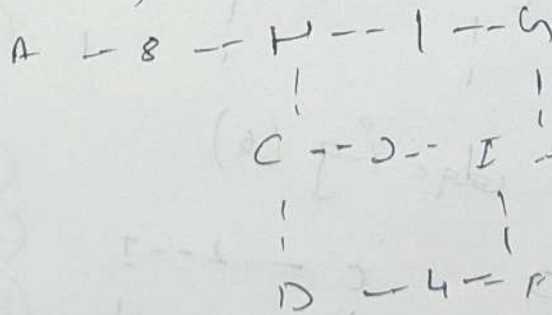 A -- 8 -- H -- 1 -- G
C -- J -- I --
D -- 4 --